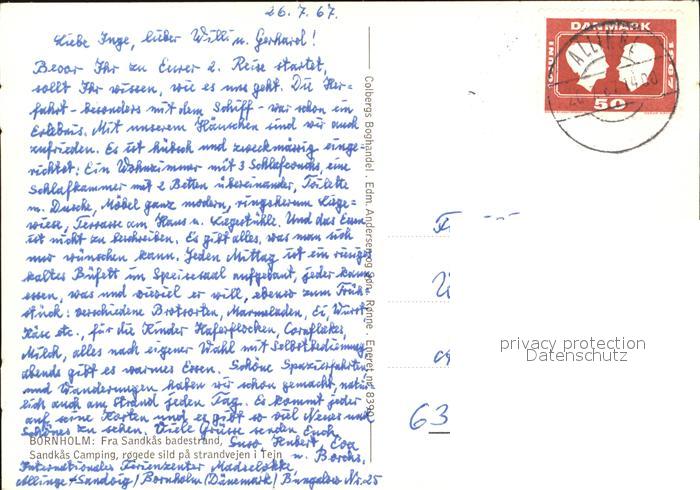 26.7.67.
Liebe Inge, lieber Willi u. Gerhard!
Bevor Ihr zu Eurer 2. Reise startet,
sollt Ihr wissen, wie es uns geht. Die Her-
fahrt - besonders mit dem Schiff - war schon ein
Erlebnis. Mit unserem Häuschen sind wir auch
zufrieden. Es ist hübsch und zweckmässig einge-
richtet: Ein Wohnzimmer mit 3 Schlafcouchs, eine
Schlafkammer mit 2 Betten übereinander, Toilette
u. Dusche, Möbel ganz modern, ringsherum Liege-
wiese, Terrasse am Haus u. Liegestühle. Und das Essen
ist nicht zu beschreiben. Es gibt alles, was man sich
nur wünschen kann. Jeden Mittag ist ein riesiges
kaltes Büfett im Speisesaal aufgebaut, jeder kann
essen, was und wieviel er will, ebenso zum Früh-
stück: verschiedene Brotsorten, Marmeladen, Ei, Wurst
Käse etc., für die Kinder Haferflocken, Cornflakes,
Milch, alles nach eigener Wahl mit Selbstbedienung,
abends gibt es warmes Essen. Schöne Spazierfahrten
und Wanderungen haben wir schon gemacht, natür-
lich auch am Strand jeden Tag. Es kommt jeder
auf seine Kosten und es gibt so viel Neues und
Schönes zu sehen. Viele Grüsse senden Euch
BORNHOLM: Fra Sandkås badestrand, Hubert, Eva
Sandkås Camping, røgede sild på strandvejen i Tejn u. Borchs,
Internationales Ferienzenter
Allinge + Sandvig / Bornholm (Dänemark) / Bungalow Nr. 25
Colbergs Boghandel . Edm. Andersen og Søn . Rønne . Eneret nr. 8390
DANMARK
JUNI
1967
50
ALLINGE
63
privacy protection
Datenschutz